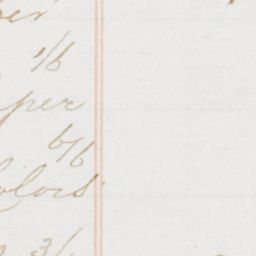 1/6
per
6/6
olors
3/